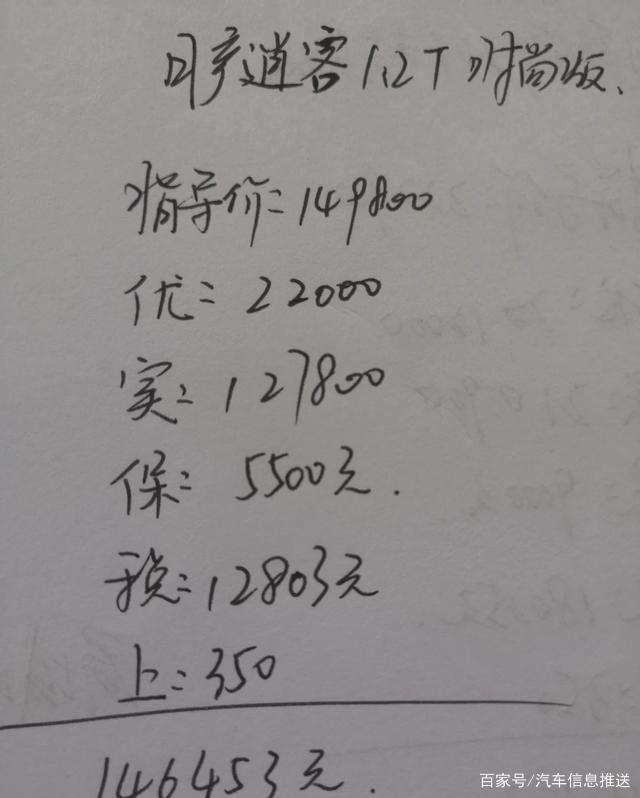 日产逍客1.2T时尚版.
指导价:149800
优:22000
实:127800
保:5500元.
税:12803元
上:350
146453元.
百家号/汽车信息推送